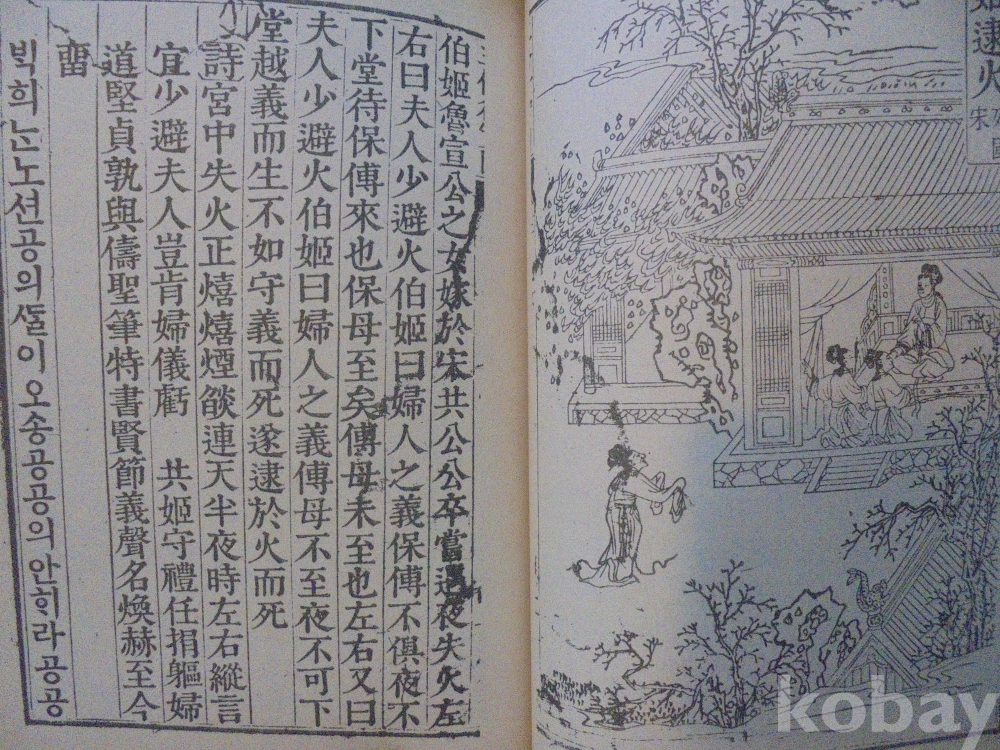 逮火
宋
伯姬魯宣公之女嫁於宋共公公卒嘗遇夜失火左
右曰夫人少避火伯姬曰婦人之義保傅不俱夜不
下堂待保傅來也保母至矣傅母未至也左右又曰
夫人少避火伯姬曰婦人之義傅母不至夜不可下
堂越義而生不如守義而死遂逮於火而死
詩宮中失火正熺熺煙燄連天半夜時左右縱言
宜少避夫人豈肯婦儀虧 共姬守禮任捐軀婦
道堅貞孰與儔聖筆特書賢節義聲名煥赫至今
畱
ᄇᆡᆨ희ᄂᆞᆫ노션공의ᄯᆞᆯ이오송공공의안ᄒᆡ라공공
kobay